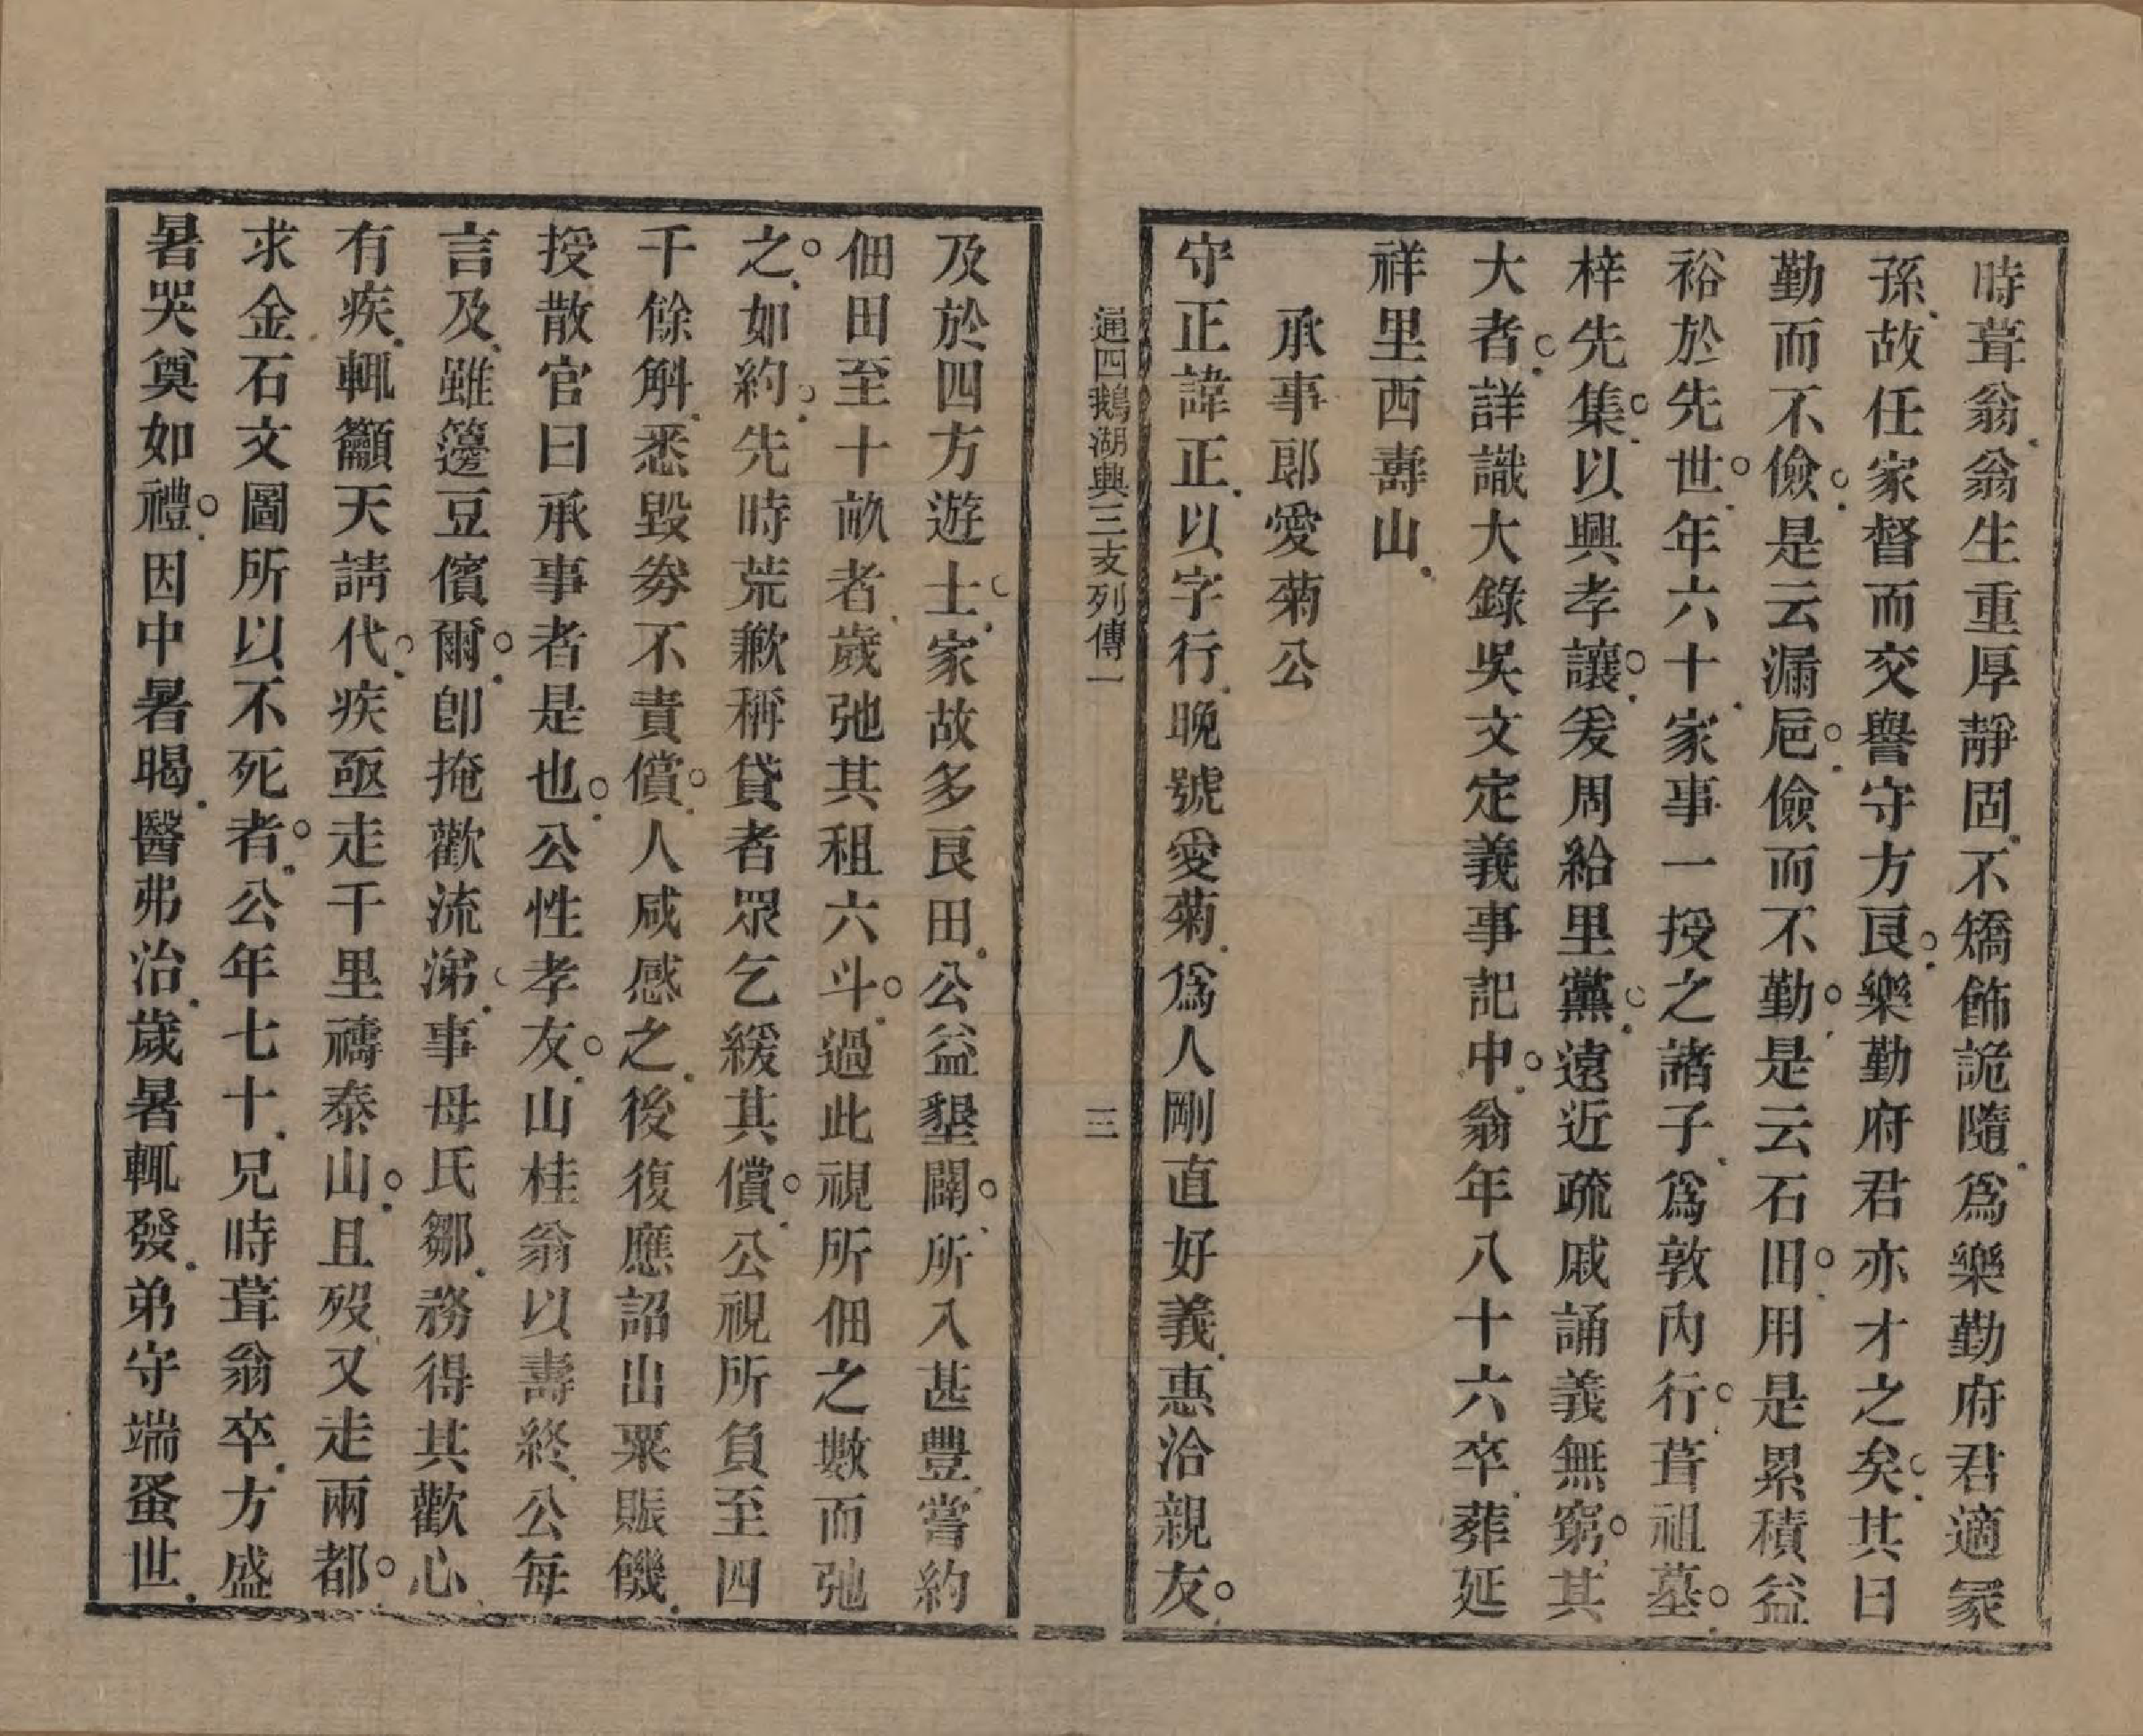 時葺翁翁生重厚靜固不矯飾詭隨爲樂勤府君適冢
孫故任家督而交譽守方良樂勤府君亦才之矣其曰
勤而不儉是云漏巵儉而不勤是云石田用是累積益
裕於先世年六十家事一授之諸子爲敦內行葺祖墓
梓先集以興孝讓爰周給里黨遠近疏戚誦義無窮其
大者詳識大錄吳文定義事記中翁年八十六卒葬延
祥里西壽山
承事郎愛菊公
守正諱正以字行晚號愛菊爲人剛直好義惠洽親友
通四鵝湖興三支列傳一
三
及於四方遊士家故多良田公益墾闢所入甚豐嘗約
佃田至十畝者歲弛其租六斗過此視所佃之數而弛
之如約先時荒歉稱貸者眾乞緩其償公視所負至四
千餘斛悉毀劵不責償人咸感之後復應詔出粟賑饑
授散官曰承事者是也公性孝友山桂翁以壽終公每
言及雖籩豆儐爾卽掩歡流涕事母氏鄒務得其歡心
有疾輒籲天請代疾亟走千里禱泰山且歿又走兩都
求金石文圖所以不死者公年七十兄時葺翁卒方盛
暑哭奠如禮因中暑暍醫弗治歲暑輒發弟守端蚤世